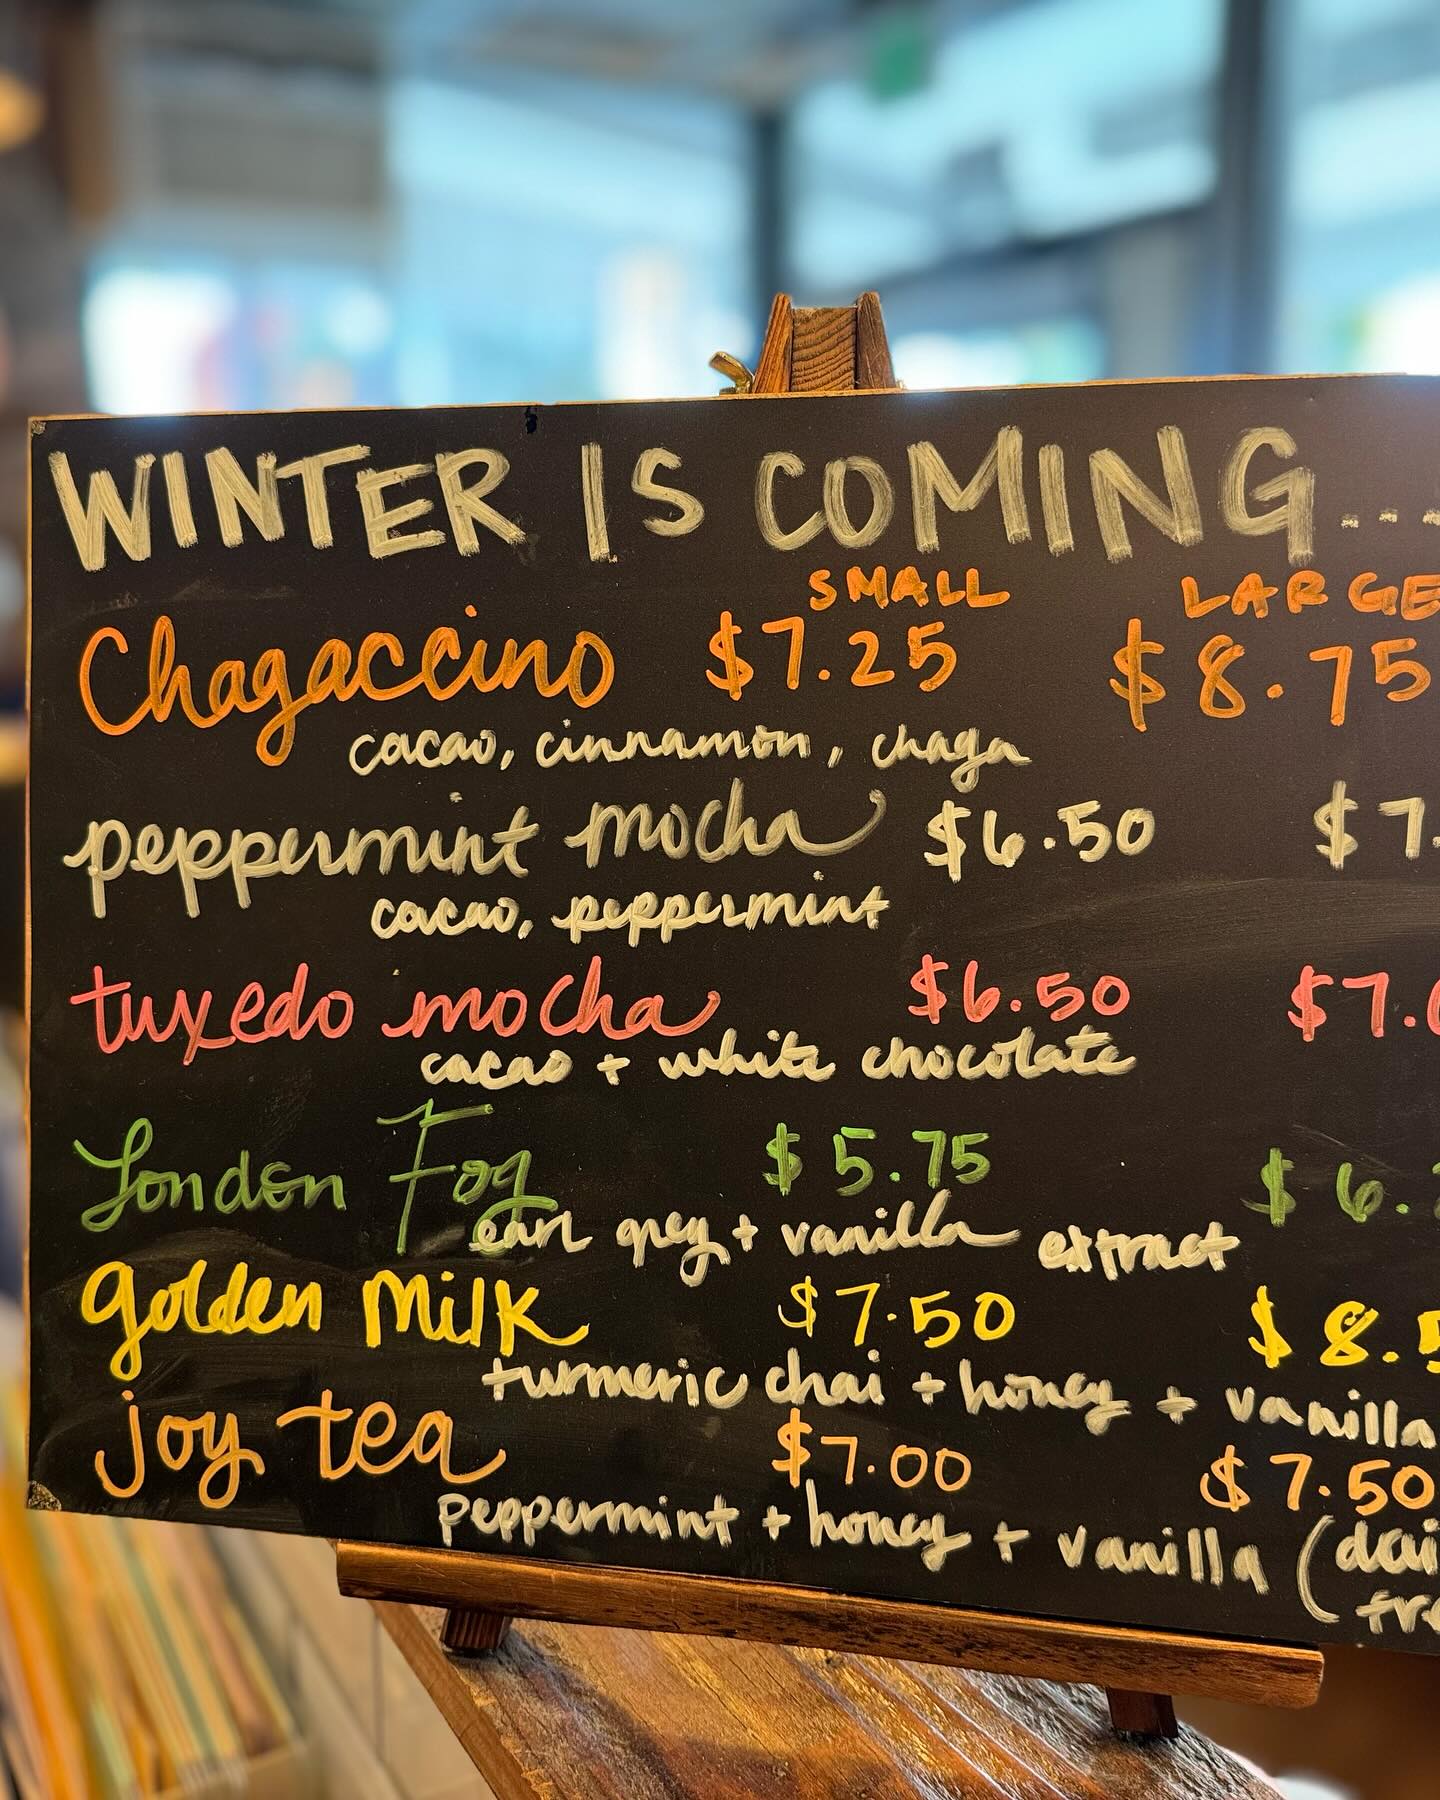 WINTER IS COMING....
SMALL LARGE
Chagaccino $7.25 $8.75
cacao, cinnamon, chaga
peppermint mocha $6.50 $7.
cacao, peppermint
tuxedo mocha $6.50 $7.
cacao + white chocolate
London Fog $5.75 $6.
earl grey + vanilla extract
golden milk $7.50 $8.5
turmeric chai + honey + vanilla
joy tea $7.00 $7.50
peppermint + honey + vanilla (dai
fre